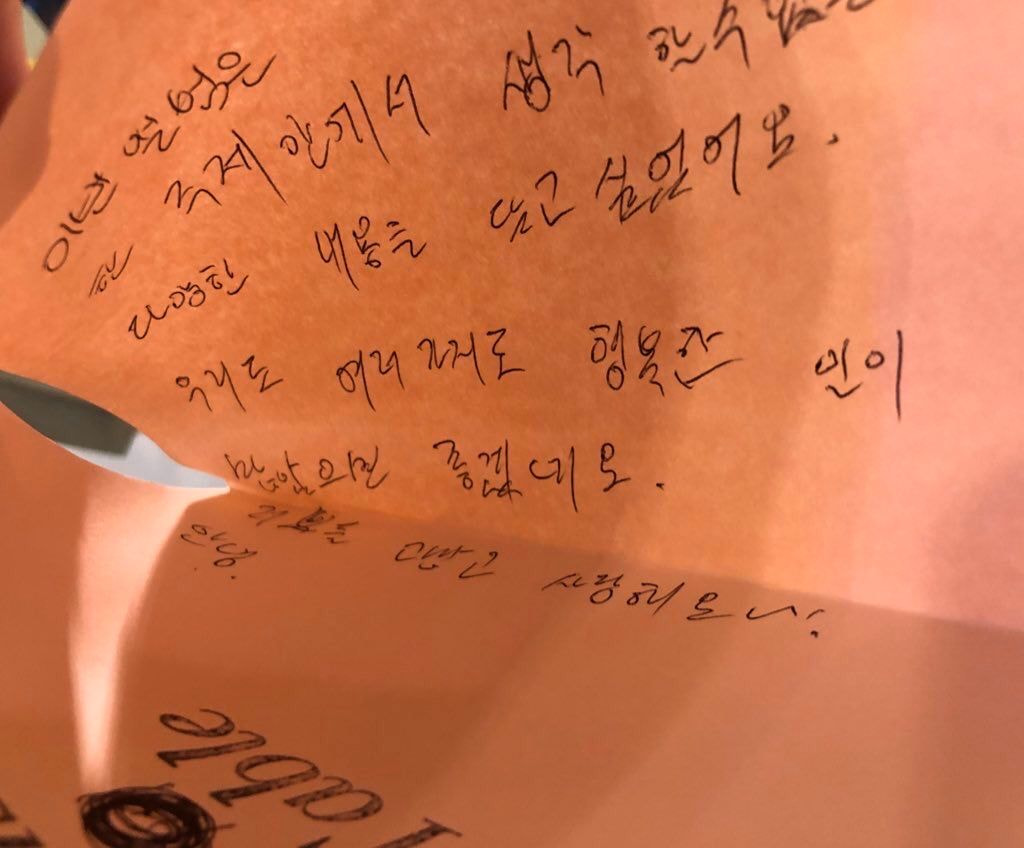 이번 앨범은
한 주제 안에서 생각 할 수 있는
다양한 내용을 담고 싶었어요.
우리도 여러가지로 행복한 일이
많았으면 좋겠네요.
고맙고 사랑해요
안녕.
Table